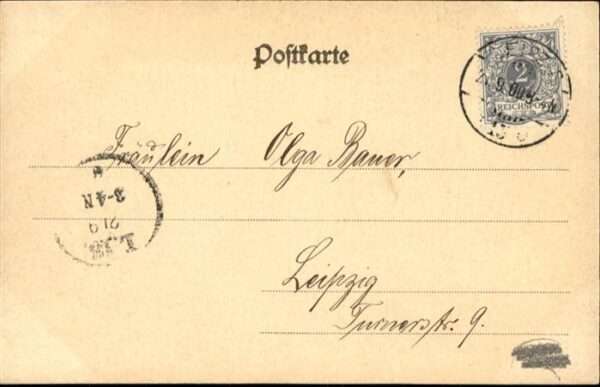 Postkarte
2
REICHSPOST
21.9.00
Fräulein Olga Bauer,
3-4N
21 9
Leipzig
Turnerstr. 9.